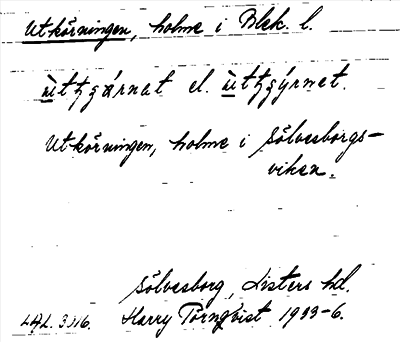 Utkörningen, holme i Blek. l.
ùttʒɡárnat el. ùttʒɡýrnet.
Utkörningen, holme i Sölvesborgs-
viken.
Sölvesborg, Listers hd.
LAL. 3516. Harry Törnqvist 1933-6.